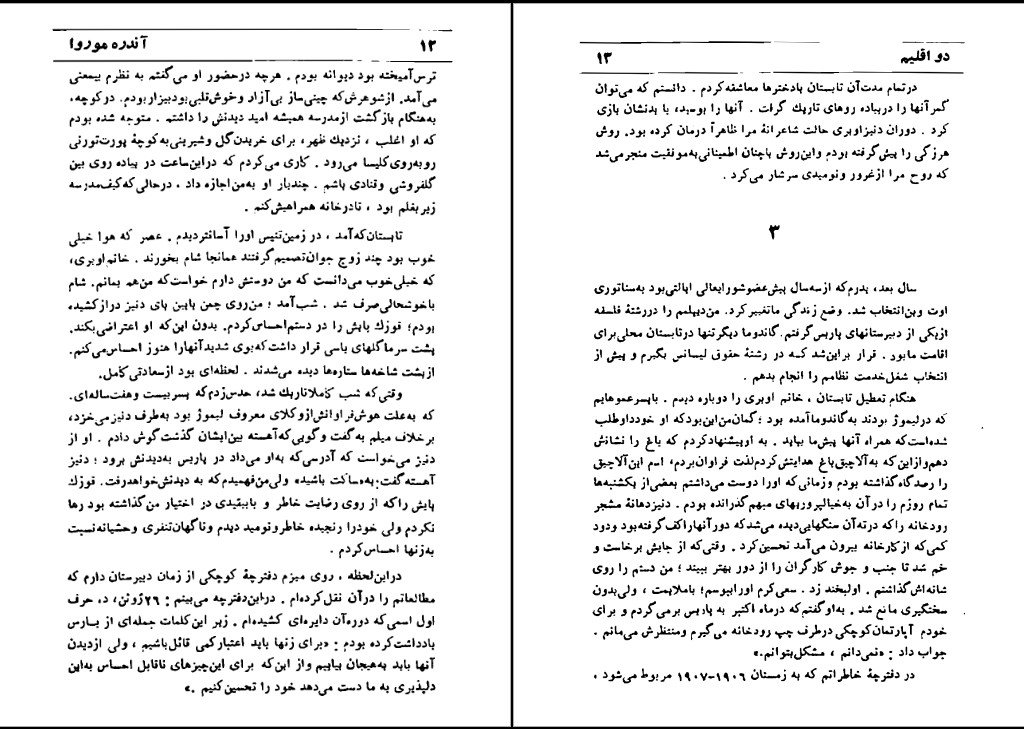 ۱۲ آندره موروا
ترس‌آمیخته بود دیوانه بودم . هرچه درحضور او می‌گفتم به نظرم بیمعنی
می‌آمد. ازشوهرش‌که چینی‌ساز بی‌آزار وخوش‌قلبی‌بودبیزاربودم. درکوچه،
به‌هنگام بازگشت ازمدرسه همیشه امید دیدنش را داشتم . متوجه شده بودم
که او اغلب ، نزدیك ظهر، برای خریدن‌گل وشیرینی‌به‌کوچهٔ پورت‌تورنی
روبه‌روی‌کلیسا می‌رود . کاری می‌کردم که دراین‌ساعت در پیاده روی بین
گلفروشی وقنادی باشم . چندبار او به‌من‌اجازه داد ، درحالی‌که‌کیف‌مدرسه
زیربغلم بود ، تادرخانه همراهیش‌کنم .
تابستان‌که‌آمد ، در زمین‌تنیس اورا آسانتردیدم . عصر که هوا خیلی
خوب بود چند زوج جوان‌تصمیم‌گرفتند همانجا شام بخورند . خانم‌اوبری،
که خیلی‌خوب می‌دانست که من دوستش دارم خواست‌که من‌هم بمانم. شام
باخوشحالی‌صرف شد . شب‌آمد ؛ من‌روی چمن پایین پای دنیز درازکشیده
بودم؛ قوزك پایش را در دستم‌احساس‌کردم. بدون این‌که او اعتراضی‌بکند.
پشت سرما گلهای یاسی قرار داشت‌که‌بوی شدیدآنهارا هنوز احساس‌می‌کنم.
ازپشت شاخه‌ها ستاره‌ها دیده می‌شدند . لحظه‌ای بود ازسعادتی‌کامل.
وقتی‌که شب کاملاتاریك شد، حدس‌زدم‌که پسربیست وهفت‌ساله‌ای.
که به‌علت هوش‌فراوانش‌ازوکلای معروف لیموژ بود به‌طرف دنیزمی‌خزد،
برخلاف میلم به‌گفت وگویی‌که‌آهسته بین‌ایشان گذشت‌گوش دادم . او از
دنیز می‌خواست که آدرسی‌که به‌او می‌داد در پاریس به‌دیدنش برود ؛ دنیز
آهسته‌گفت:«به‌ساکت باشید» ولی‌من‌فهمیدم‌که به دیدنش‌خواهدرفت. قوزك
پایش راکه از روی رضایت خاطر و بابیقیدی در اختیار من‌گذاشته بود رها
نکردم ولی خودرا رنجیده خاطر ونومید دیدم وناگهان‌تنفری وحشیانه‌نسبت
به‌زنها احساس‌کردم .
دراین‌لحظه ، روی میزم دفترچهٔ کوچکی از زمان دبیرستان دارم که
مطالعاتم را درآن نقل‌کرده‌ام . دراین‌دفترچه می‌بینم : ۲۶ژوئن، د، حرف
اول اسمی‌که دوره‌آن دایره‌ای کشیده‌ام . زیر این‌کلمات جمله‌ای از بارس
یادداشت‌کرده بودم : «برای زنها باید اعتبارکمی قائل‌باشیم ، ولی ازدیدن
آنها باید به‌هیجان بیاییم واز این‌که برای این‌چیزهای ناقابل احساس به‌این
دلپذیری به ما دست می‌دهد خود را تحسین‌کنیم .»
دو اقلیم ۱۳
درتمام مدت‌آن تابستان بادخترها معاشقه‌کردم . دانستم که می‌توان
کمرآنها را درپیاده روهای تاریك گرفت . آنها را بوسید، با بدنشان بازی
کرد . دوران دنیزاوبری حالت شاعرانهٔ مرا ظاهراً درمان کرده بود. روش
هرزگی را پیش‌گرفته بودم واین‌روش باچنان اطمینانی‌به‌موفقیت منجرمی‌شد
که روح مرا ازغرور ونومیدی سرشار می‌کرد .
۳
سال بعد، پدرم‌که ازسه‌سال پیش‌عضوشورای‌عالی ایالتی‌بود به‌سناتوری
اوت وین‌انتخاب شد. وضع زندگی ماتغییرکرد. من‌دیپلمم را دررشتهٔ فلسفه
ازیکی از دبیرستانهای پاریس‌گرفتم. گاندوما دیگرتنها درتابستان محلی‌برای
اقامت مابود . قرار براین‌شد کسه در رشتهٔ حقوق لیسانس بگیرم و پیش از
انتخاب شغل‌خدمت نظامم را انجام بدهم .
هنگام تعطیل تابستان ، خانم اوبری را دوباره دیدم . باپسرعموهایم
که درلیموژ بودند به‌گاندوماآمده بود ؛ گمان‌من‌این‌بودکه او خودداوطلب
شده‌است‌که همراه آنها پیش‌ما بیاید . به اوپیشنهادکردم که باغ را نشانش
دهم‌وازاین‌که به‌آلاچیق‌باغ هدایتش‌کردم‌لذت فراوان‌بردم، اسم این‌آلاچیق
را رصدگاه‌گذاشته بودم وزمانی‌که اورا دوست می‌داشتم بعضی‌از یکشنبه‌ها
تمام روزم را درآن به‌خیالپروریهای مبهم گذرانده بودم . دنیزدهانهٔ مشجر
رودخانه راکه درته‌آن سنگهایی‌دیده می‌شدکه دورآنهاراکف‌گرفته‌بود ودود
کمی‌که ازکارخانه بیرون می‌آمد تحسین‌کرد . وقتی‌که از جایش برخاست و
خم شد تا جنب و جوش کارگران را از دور بهتر ببیند ؛ من دستم را روی
شانه‌اش‌گذاشتم . اولبخند زد . سعی‌کرم اوراببوسم؛ باملایمت ، ولی‌بدون
سختگیری مانع شد . به‌اوگفتم‌که درماه اکتبر به پاریس برمی‌گردم و برای
خودم آپارتمان‌کوچکی درطرف چپ رودخانه می‌گیرم ومنتظرش می‌مانم .
جواب داد : «نمی‌دانم ، مشکل‌بتوانم.»
در دفترچهٔ خاطراتم که به زمستان ۱۹۰۶-۱۹۰۷ مربوط می‌شود ،